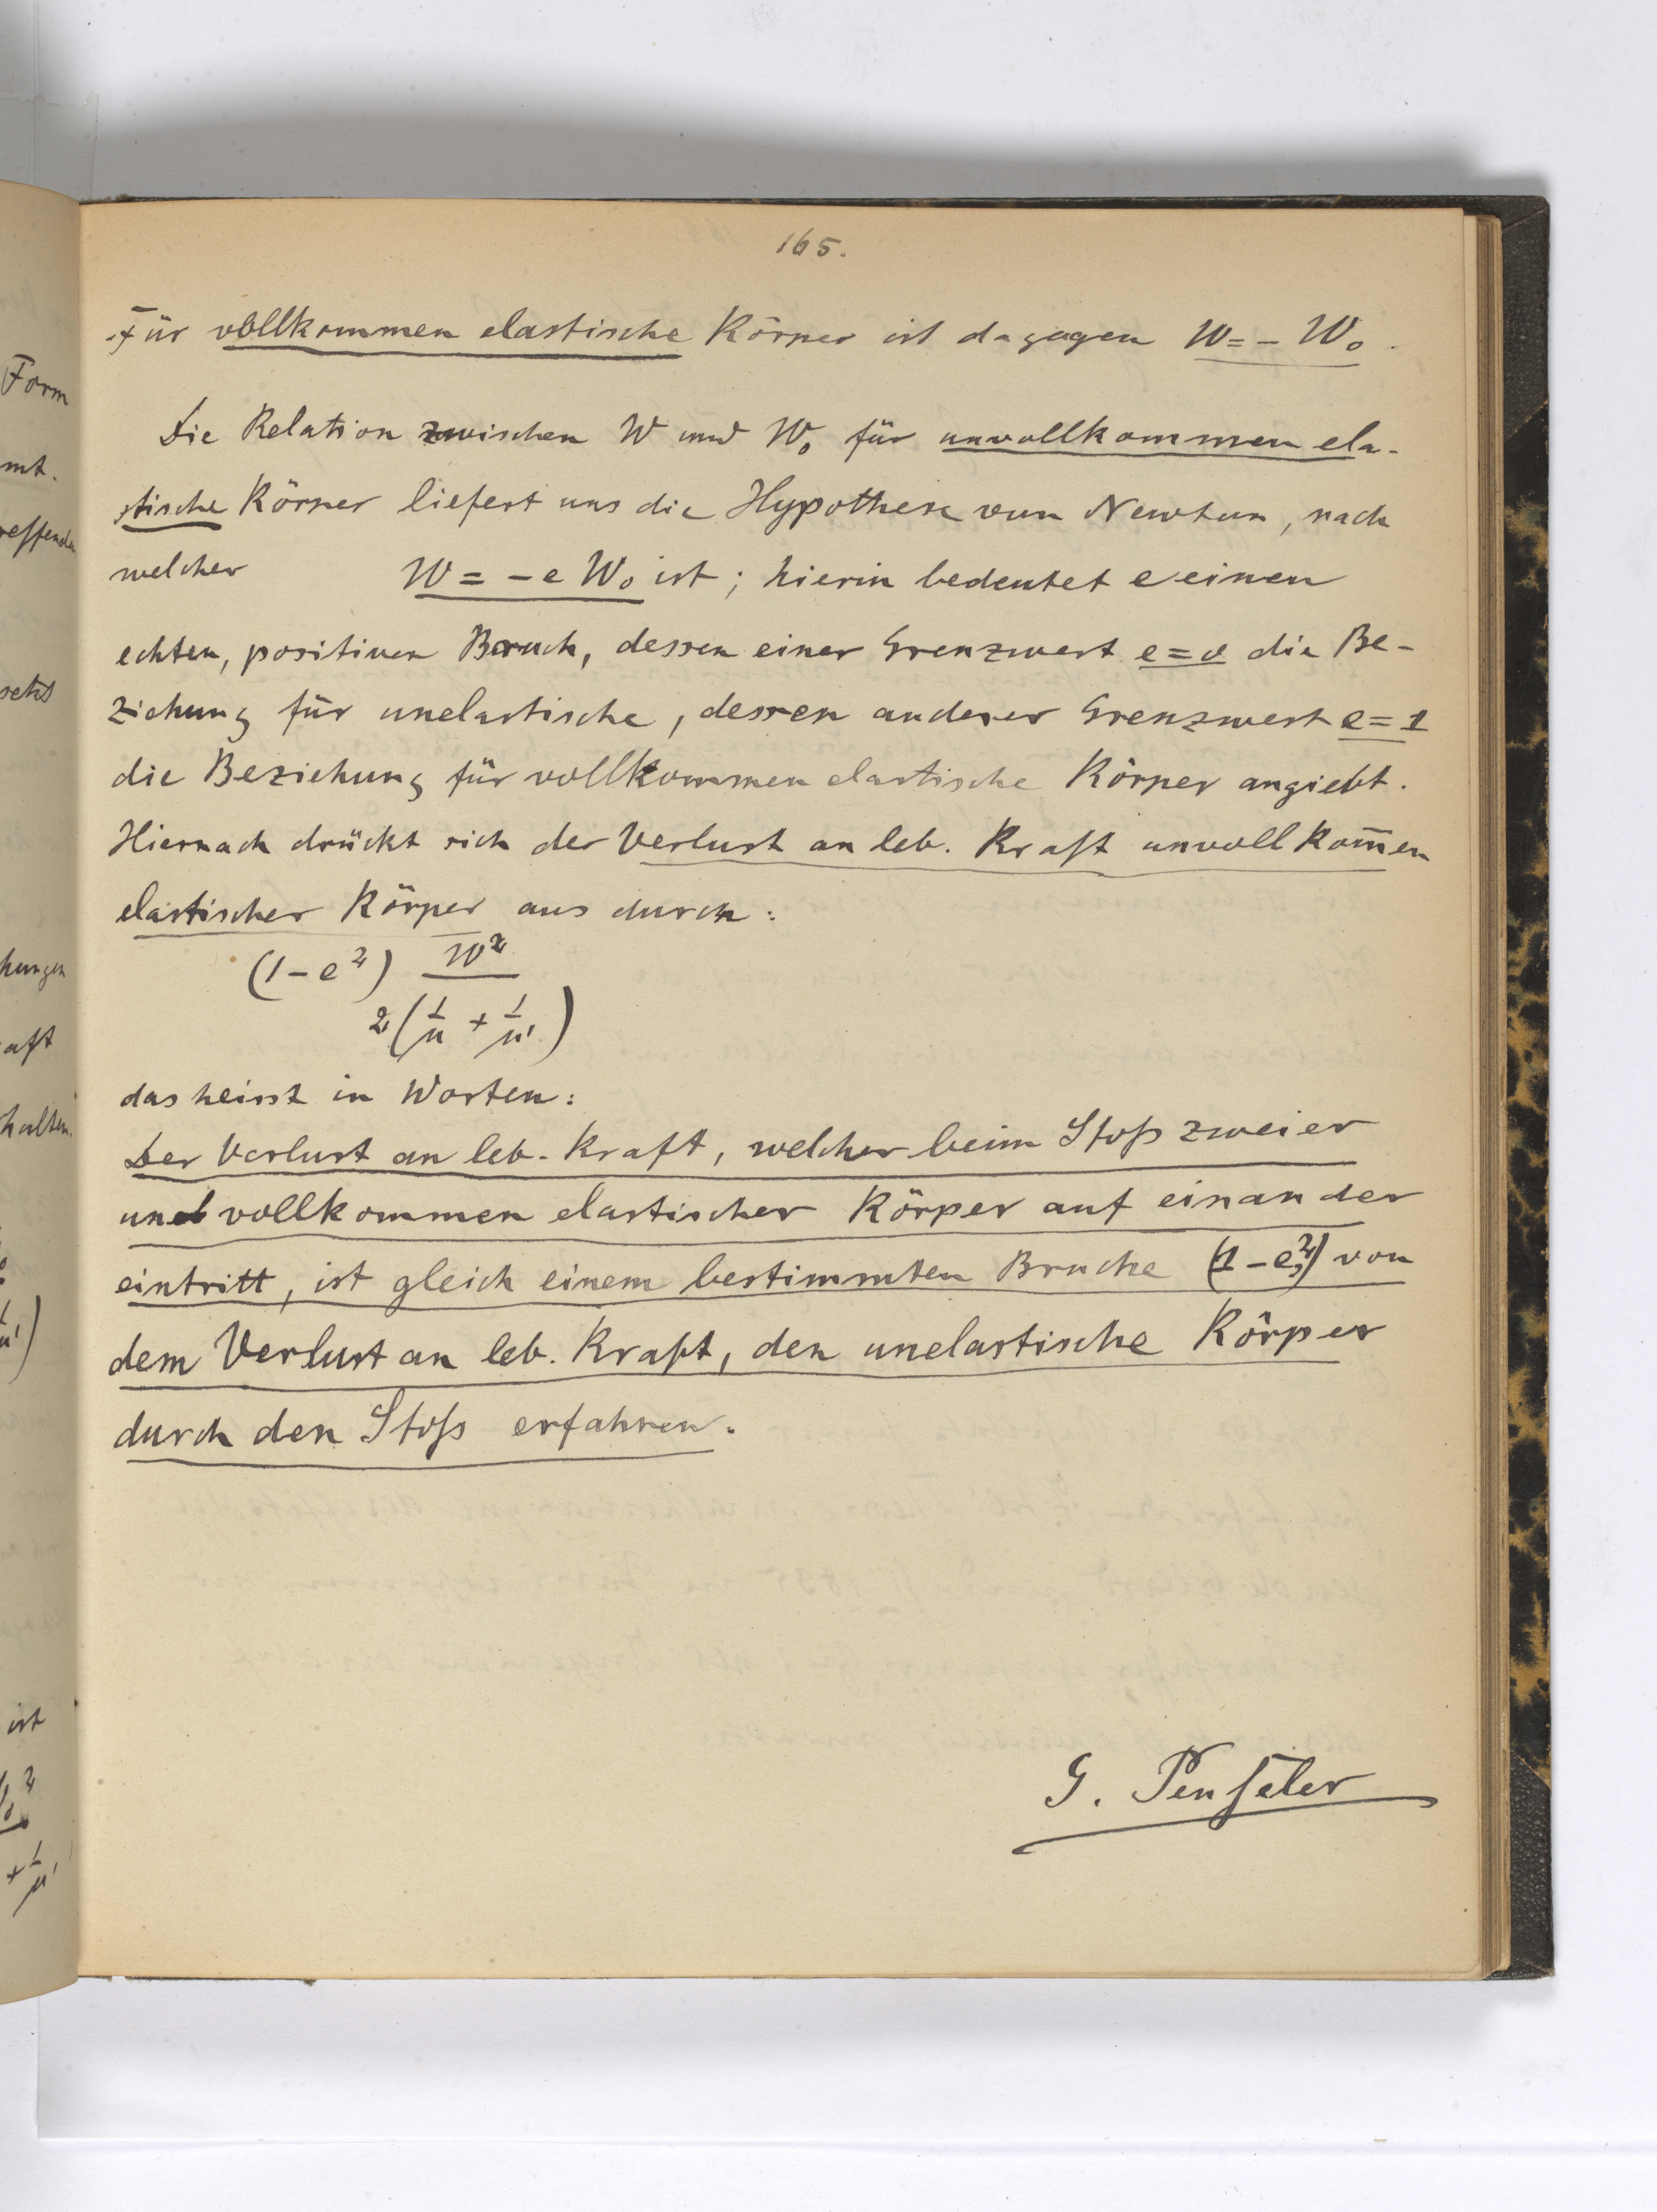 165.
Für vollkommen elastische Körper ist dagegen W = - W₀.
Die Relation zwischen W und W₀ für unvollkommen ela-
stische Körper liefert uns die Hypothese von Newton, nach
welcher W = - e W₀ ist; hierin bedeutet e einen
echten, positiven Bruch, dessen einer Grenzwert e = 0 die Be-
ziehung für unelastische, dessen anderer Grenzwert e = 1
die Beziehung für vollkommen elastische Körper angiebt.
Hiernach drückt sich der Verlust an leb. Kraft unvollkom̅en
elastischer Körper aus durch:
(1 - e²) W²
2 (1/μ + 1/μ')
das heisst in Worten:
Der Verlust an leb. Kraft, welcher beim Stoß zweier
unvollkommen elastischer Körper auf einander
eintritt, ist gleich einem bestimmten Bruche (1 - e²) von
dem Verlust an leb. Kraft, den unelastische Körper
durch den Stoß erfahren.
G. Penseler
Form
mt.
reffenden
setzt
hungen
aft
halten.
μ')
ist
²
+ 1/μ'